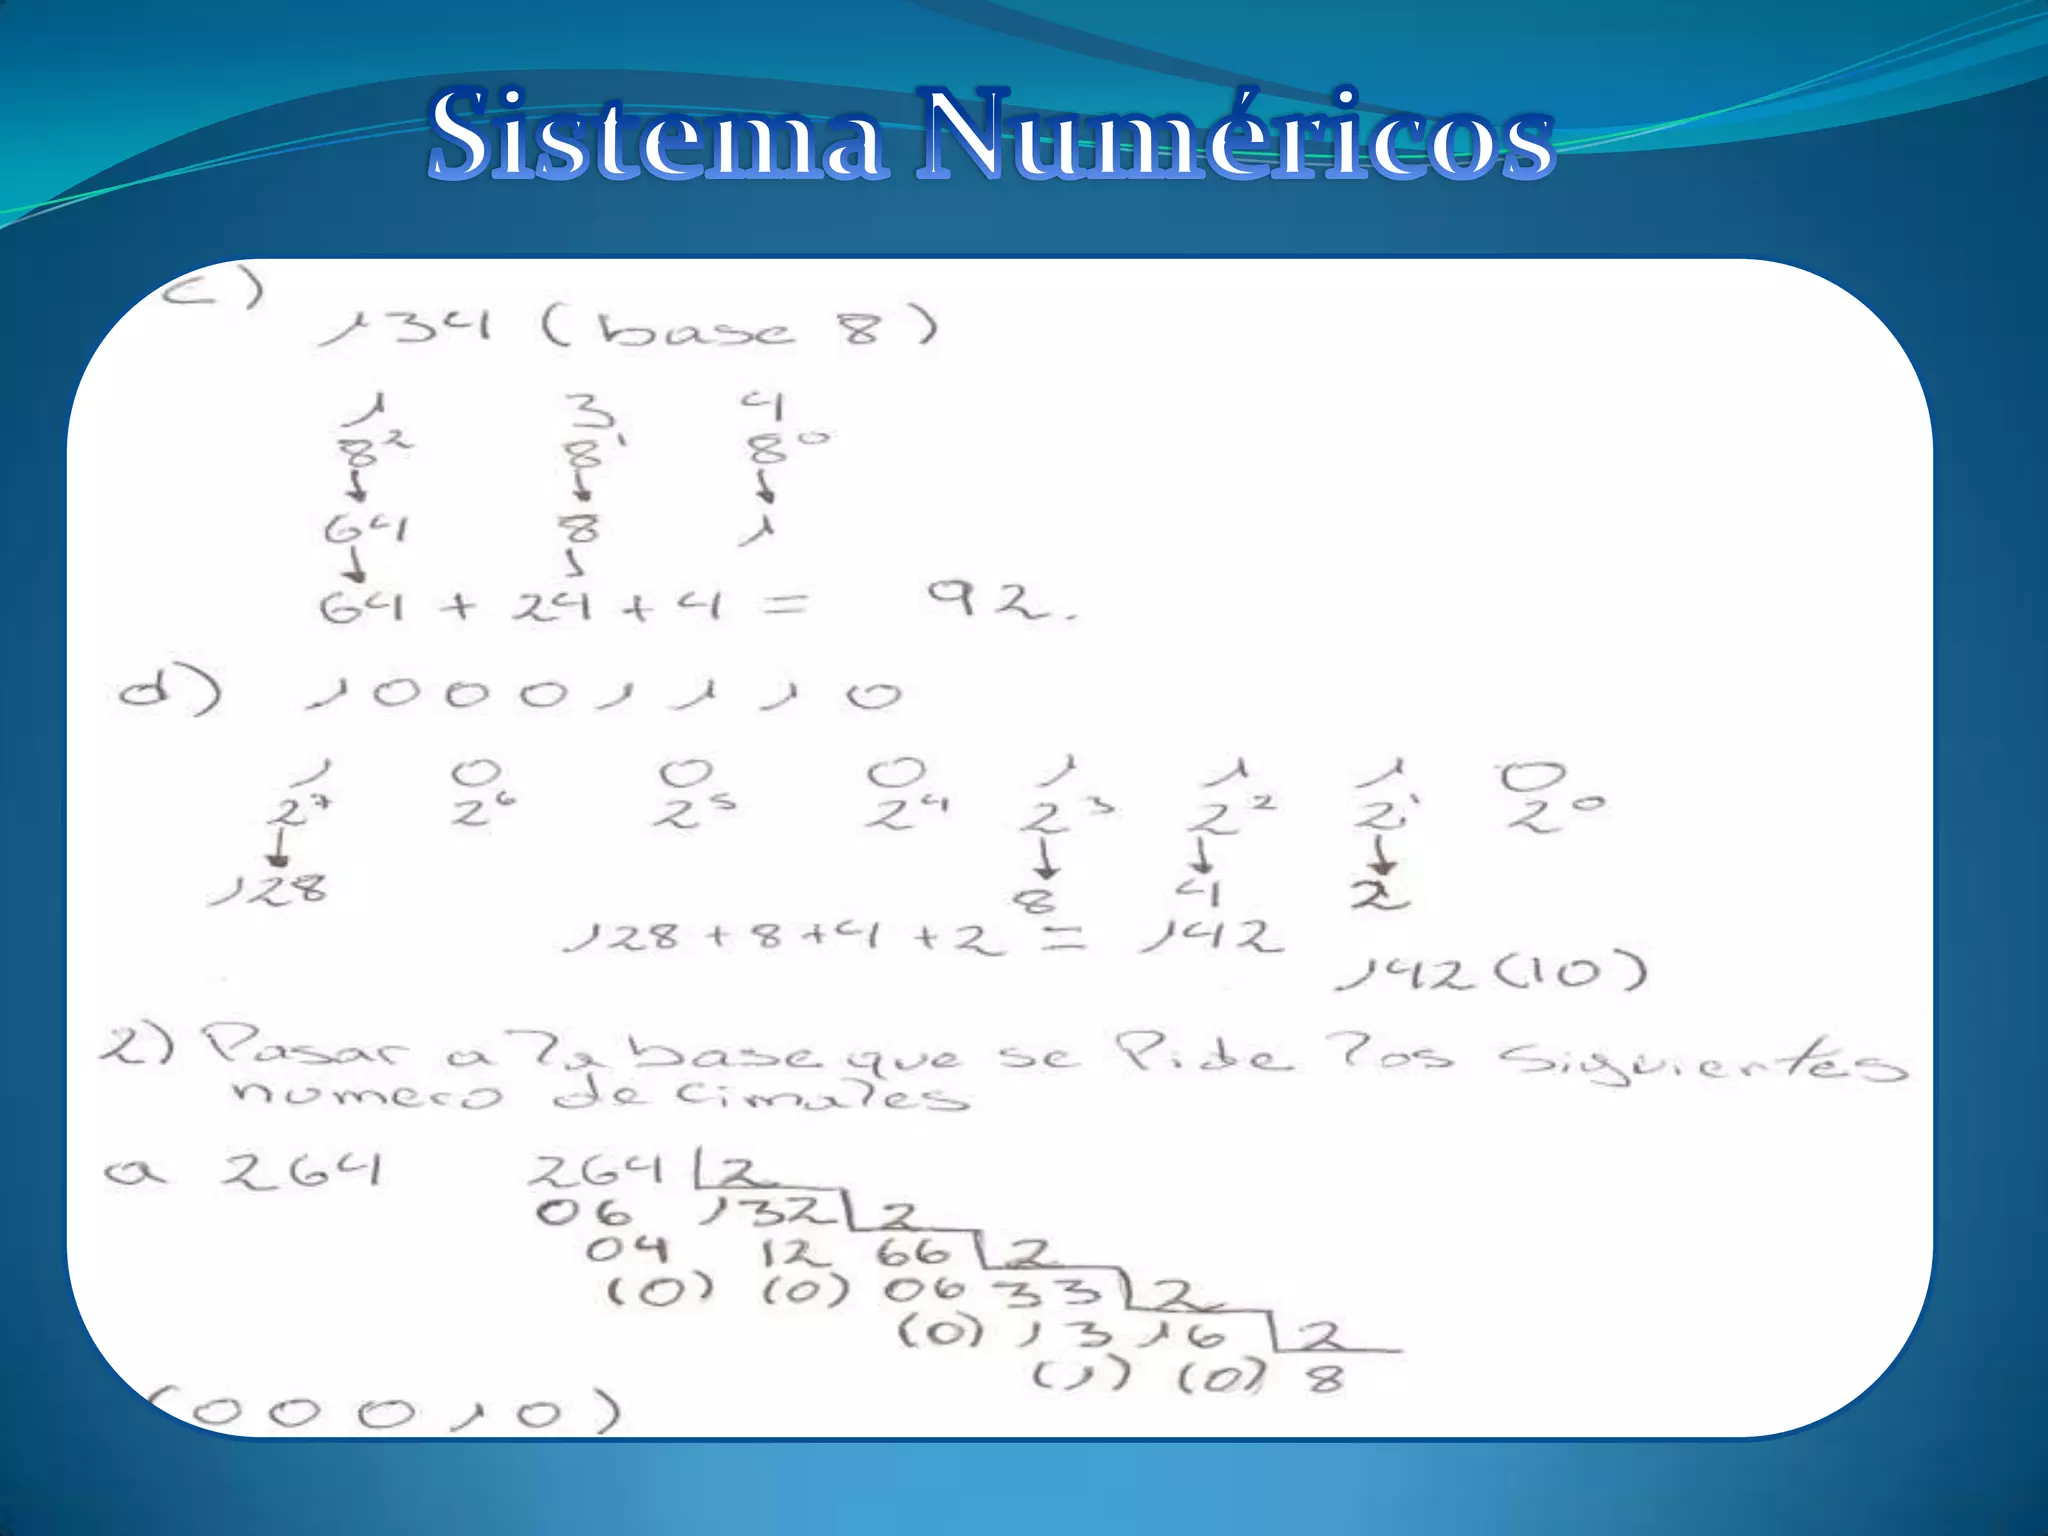 Sistema Numéricos
c)
134 (base 8)
1 3 4
8² 8¹ 8⁰
64 8 1
64 + 24 + 4 = 92.
d) 10001110
1 0 0 0 1 1 1 0
2⁷ 2⁶ 2⁵ 2⁴ 2³ 2² 2¹ 2⁰
128 8 4 2
128 + 8 + 4 + 2 = 142
142 (10)
2) Pasar a la base que se Pide los siguientes
numero decimales
a 264 264 2
06 132 2
04 12 66 2
(0) (0) 06 33 2
(0) 13 16 2
(1) (0) 8
(00010)